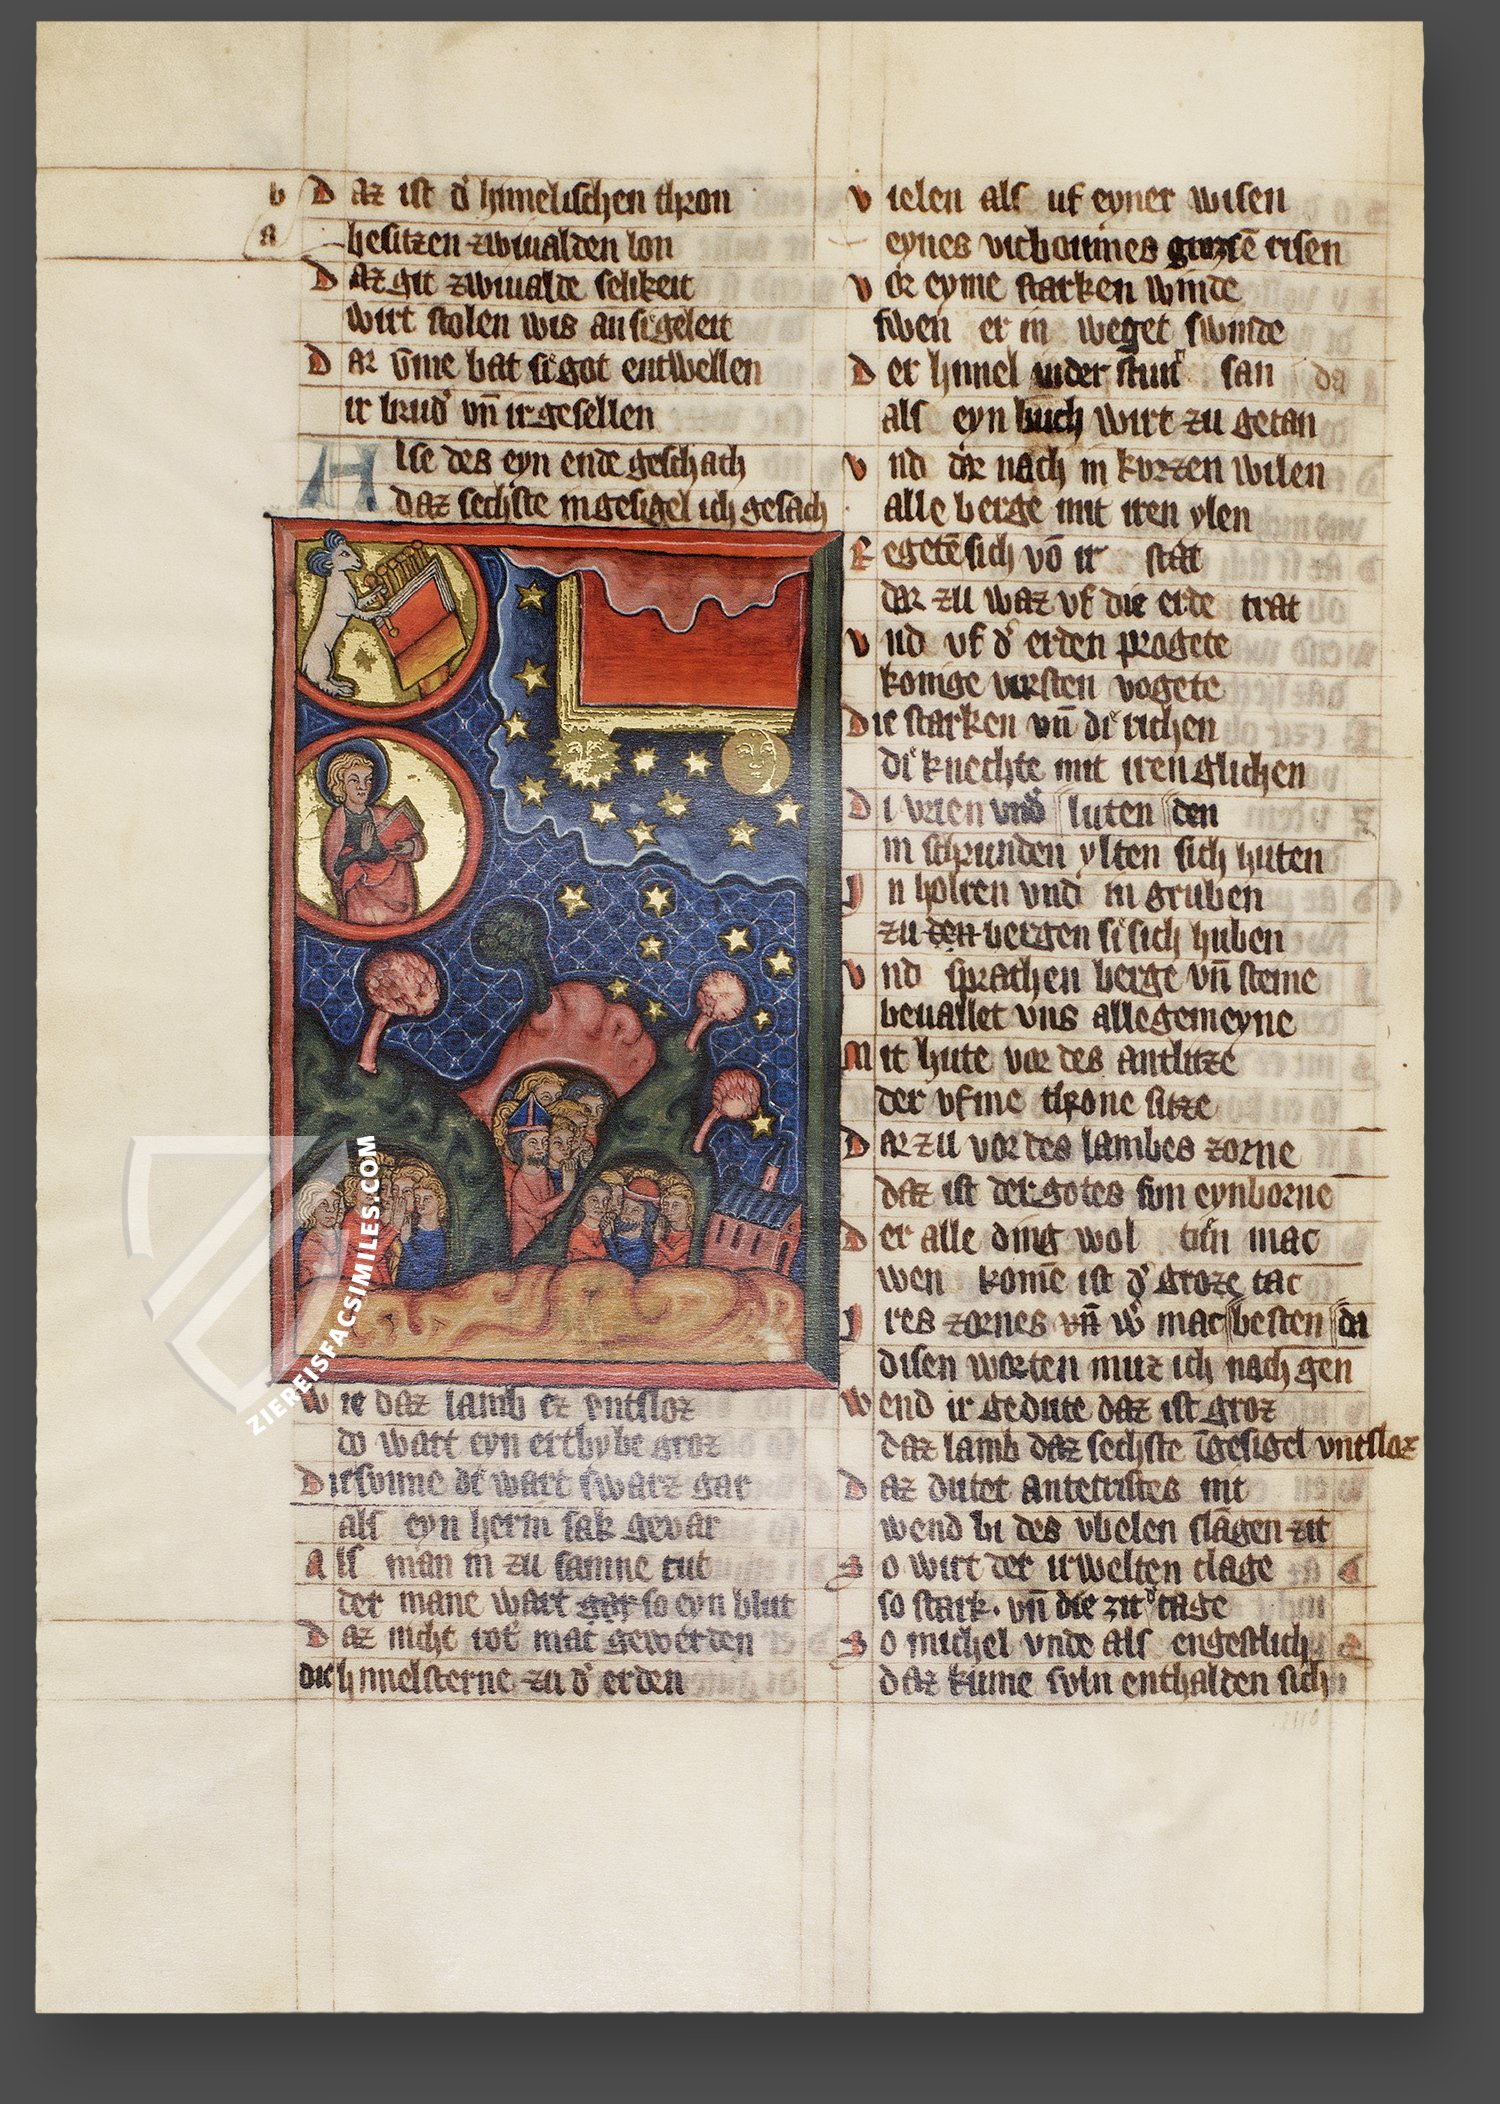 b Daz ist d' himelischen thron
a besitzen zwiualden lon
Daz git zwiualde selikeit
wirt stolen wis an si geleit
Dar vme bat si got entwellen
ir brud' vn̄ ir gesellen
Alse des eyn ende geschach
daz sechste ingesigel ich gesach
Wie daz lamb ez entsloz
do wart eyn erthybe groz
Die sunne di wart swarz gar
als eyn herin sak gevar
Als man in zu samne tut
der mane wart gar so eyn blut
Daz nicht rot' mac gewerden
die himelsterne zu d' erden
Vielen als uf eyner wisen
eynes vicboumes risen
Vor eyme starken winde
swen er in weget swinde
Der himel san da
als eyn buch wirt zu getan
Vnd dar nach in kurzen wilen
alle berge mit iren ylen
Regetē sich vō ir stat
dar zu waz vf die erde trat
Vnd vf d' erden progete
konige virsten vogete
Die starken vn̄ di richen
di knechte mit iren glichen
Di vrien vnd luten den
in schrunden ylten sich huten
In holren vnd in gruben
zu den bergen si sich huben
Vnd sprachen berge vn̄ steine
beuallet vns allegemeyne
Mit hute vor des antlitze
der vfme throne sitze
Dar zu vor des lambes zorne
daz ist der gotes sun eynborne
Der alle ding wol tun mac
wen komē ist d' groze tac
Ires zornes vn̄ w' mac besten da
disen worten muz ich nach gen
Wend ir gedute daz ist groz
daz lamb daz sechste īgesigel vntsloz
Daz dutet Antecristes int
wend bi des vbelen slagen zit
So wirt der irwelten clage
so stark. vn̄ die zit tage
So michel vnde als engestlich
daz kume suln enthalden sich
ZIEREISFACSIMILES.COM